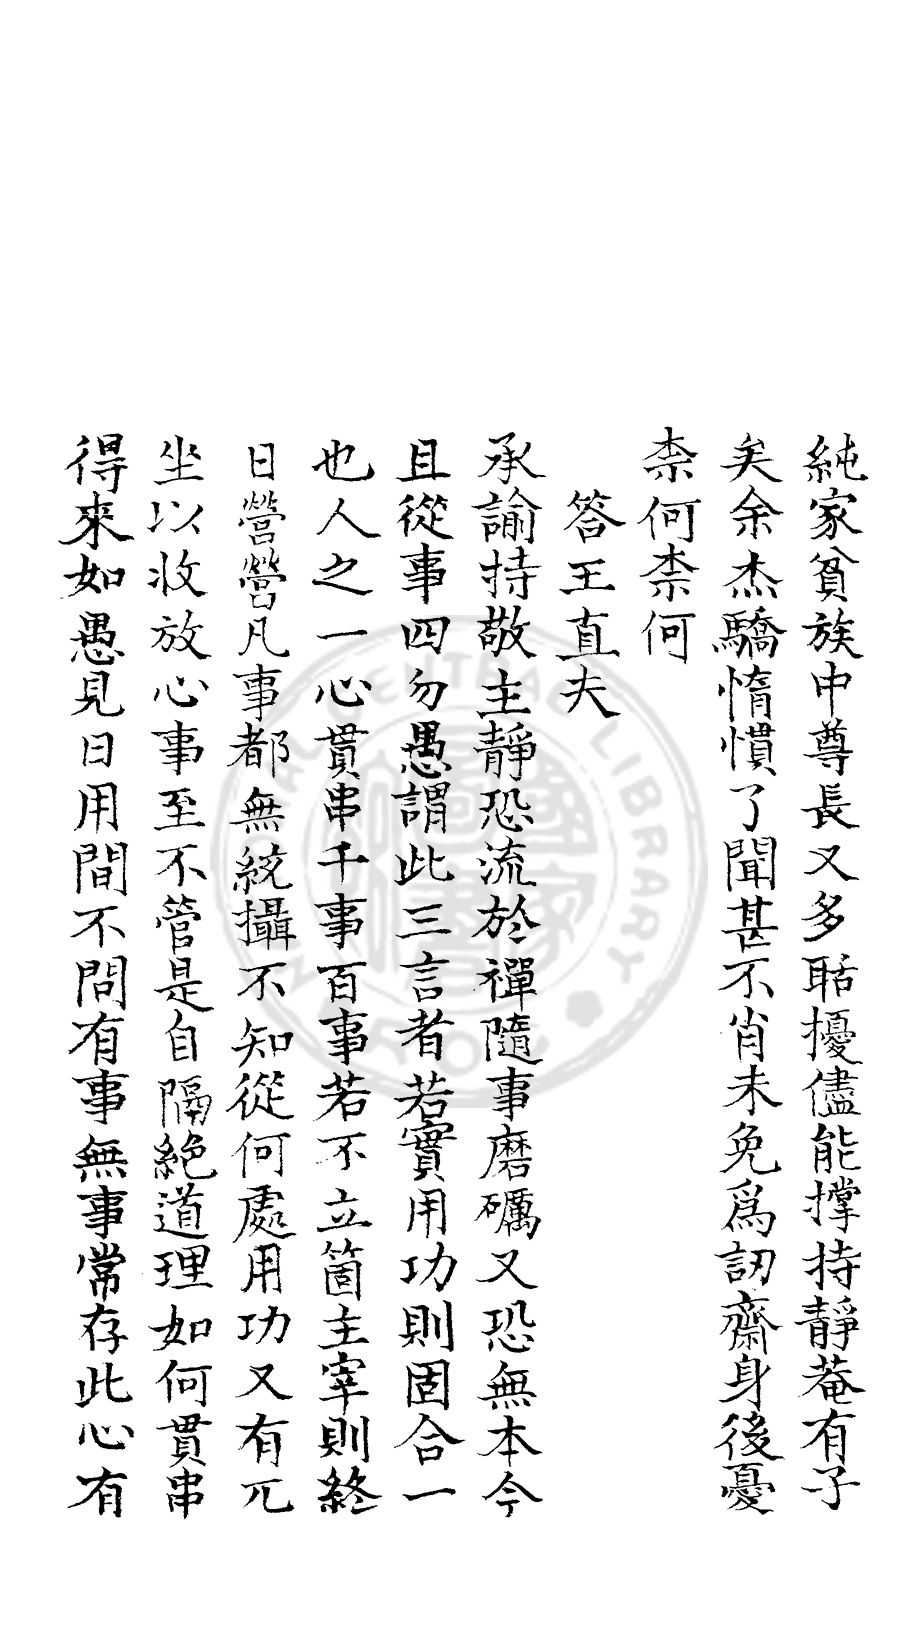 純家貧族中尊長又多聒擾儘能撑持靜菴有子
矣余杰驕惰慣了聞甚不肖未免爲訒齋身後憂
柰何柰何
答王直夫
承諭持敬主靜恐流於禪隨事磨礪又恐無本今
且從事四勿愚謂此三言者若實用功則固合一
也人之一心貫串千事百事若不立箇主宰則終
日營營凡事都無統攝不知從何處用功又有兀
坐以收放心事至不管是自隔絶道理如何貫串
得來如愚見日用間不問有事無事常存此心有
NATIONAL CENTRAL LIBRARY